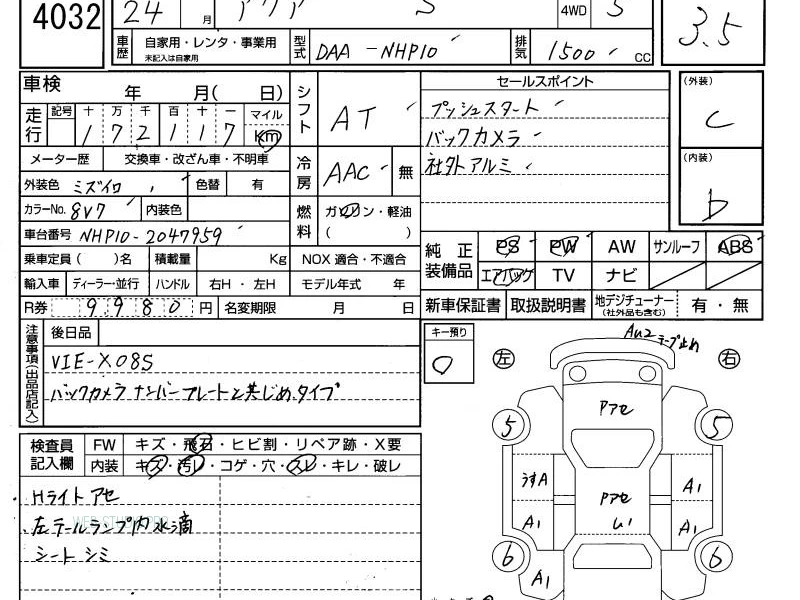 4032
24 月 アクア S 4WD 5
3.5
車歴 自家用・レンタ・事業用 未記入は自家用 型式 DAA-NHP10 排気 1500 CC
車検 年 月( 日) シフト AT
セールスポイント
プッシュスタート
バックカメラ
社外アルミ
(外装)
C
(内装)
b
走行 記号 十 万 千 百 十 一 マイル
1 7 2 1 1 7 Km
メーター歴 交換車・改ざん車・不明車
冷房 AAC 無
外装色 ミズイロ 色替 有
カラーNo. 8V7 内装色
燃料 ガソリン・軽油
( )
車台番号 NHP10-2047959
乗車定員( )名 積載量 Kg NOX 適合・不適合
輸入車 ディーラー・並行 ハンドル 右H・左H モデル年式 年
R券 9 9 8 0 円 名変期限 月 日
純正装備品 PS PW AW サンルーフ ABS
エアバッグ TV ナビ
新車保証書 取扱説明書 地デジチューナー (社外品も含む) 有・無
注意事項(出品店記入) 後日品
VIE-X08S
バックカメラ ナンバープレートと共じめタイプ
キー預り
0
左 右
AU2 テープ止め
Pアセ
5 5
うすA
Pアセ
U1
A1
A1
A1
6 6
A1
検査員記入欄 FW キズ・飛石・ヒビ割・リペア跡・X要
内装 キズ・汚レ・コゲ・穴・スレ・キレ・破レ
Hライト アセ
左テールランプ内水滴
シート シミ